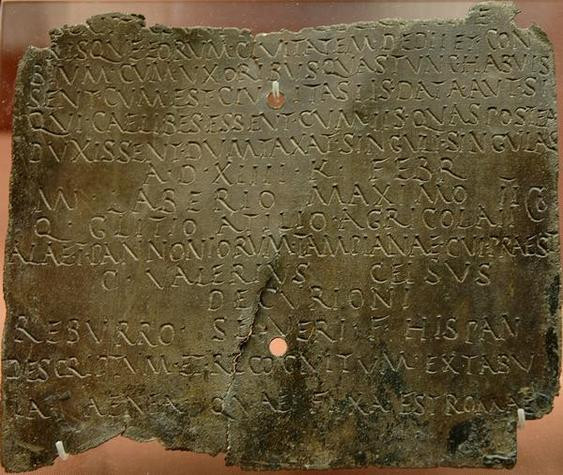 RISQVE·EORVM·CIVITATEM·DEDIT·ET·CONV
BIVM·CVM·VXORIBVS·QVAS·TVNC·HABVIS
SENT·CVM·EST·CIVITAS·IIS·DATA·AVT·SI
QVI·CAELIBES·ESSENT·CVM·IIS·QVAS·POSTEA
DVXISSENT·DVMTAXAT·SINGVLI·SINGVLAS
A·D·XIIII·K·FEBR
LABERIO MAXIMO II
Q·GLITIO·ATILIO·AGRICOLA·II
ALAE·I·PANNONIORVM·TAMPIANAE·CVI·PRAEST
C·VALERIVS CELSVS
DECVRIONI
REBVRRO·SEVERI·F·HISPAN
DESCRIPTVM·ET·RECOGNITVM·EX·TABV
LA·AENEA·QVAE·FIXA·EST·ROMAE